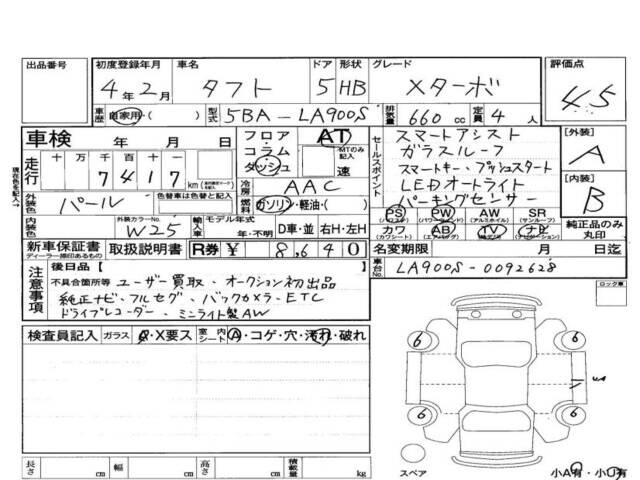 出品番号
初度登録年月
4年2月
車名
タフト
ドア
5
形状
HB
グレード
Xターボ
評価点
4.5
車歴
自家用・( )
型式
5BA-LA900S
排気量
660 cc
定員
4人
車検 年 月 日
フロア AT
コラム
ダッシュ
MTのみ記入
速
セールスポイント
スマートアシスト
ガラスルーフ
スマートキー、プッシュスタート
LEDオートライト
パーキングセンサー
[外装]
A
[内装]
B
現在色を記入→
走行
十 万 千 百 十
7417 km
外装色
パール
色替車は色替と記入
冷房
AAC
燃料
ガソリン・軽油・( )
PS (パワステ) PW AW (アルミホイル) SR (サンルーフ)
カワ (カワシート) AB (エアバッグ) TV ナビ
純正品のみ丸印
内装色
外装カラーNo.
W25
輸入車
モデル年式
年・不明
D車・並 右H・左H
新車保証書
ディーラー捺印あるもの
取扱説明書
R券 ¥ 8,640
名変期限 月 日迄
車台No.
LA900S-0092628
注意事項
後日品 [
不具合箇所等 ユーザー買取、オークション初出品
純正ナビ・フルセグ、バックカメラ・ETC
ドライブレコーダー、ミニライト製AW
ロック車
検査員記入
ガラス
・X要ス
室内シート
A・コゲ・穴・汚れ・破れ
6
6
6
6
スペア
小A有・小U有
長さ cm
幅 cm
高さ cm
積載量 kg